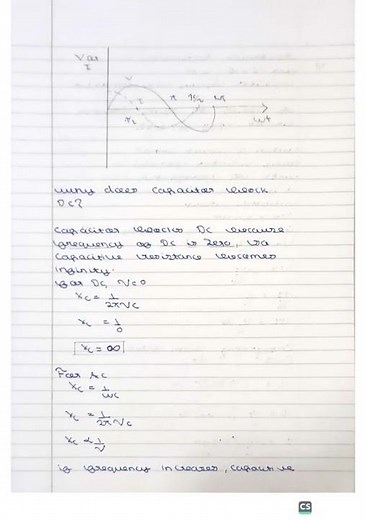 V or
I
V
I
π 3π/2 ωt
π/2 ωt
why does capacitor block
DC?
Capacitor blocks DC because
frequency of DC is zero, so
capacitive resistance becomes
infinity.
for DC, ν=0
Xc = 1/2πνc
Xc = 1/0
Xc = ∞
For AC
Xc = 1/ωc
Xc = 1/2πνc
Xc ∝ 1/ν
if frequency increases, capacitive
CS